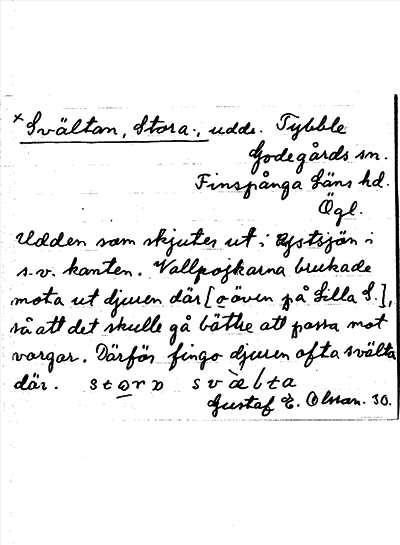 × Svältan, Stora-, udde. Tybble
Godegårds sn.
Finspånga Läns hd.
Ögl.
Udden som skjuter ut i Rystsjön i
s.v. kanten. Vallpojkarna brukade
mota ut djuren där [o även på Lilla S.],
så att det skulle gå bättre att passa mot
vargar. Därför fingo djuren ofta svälta
där.
Gustaf E. Olsson. 30.